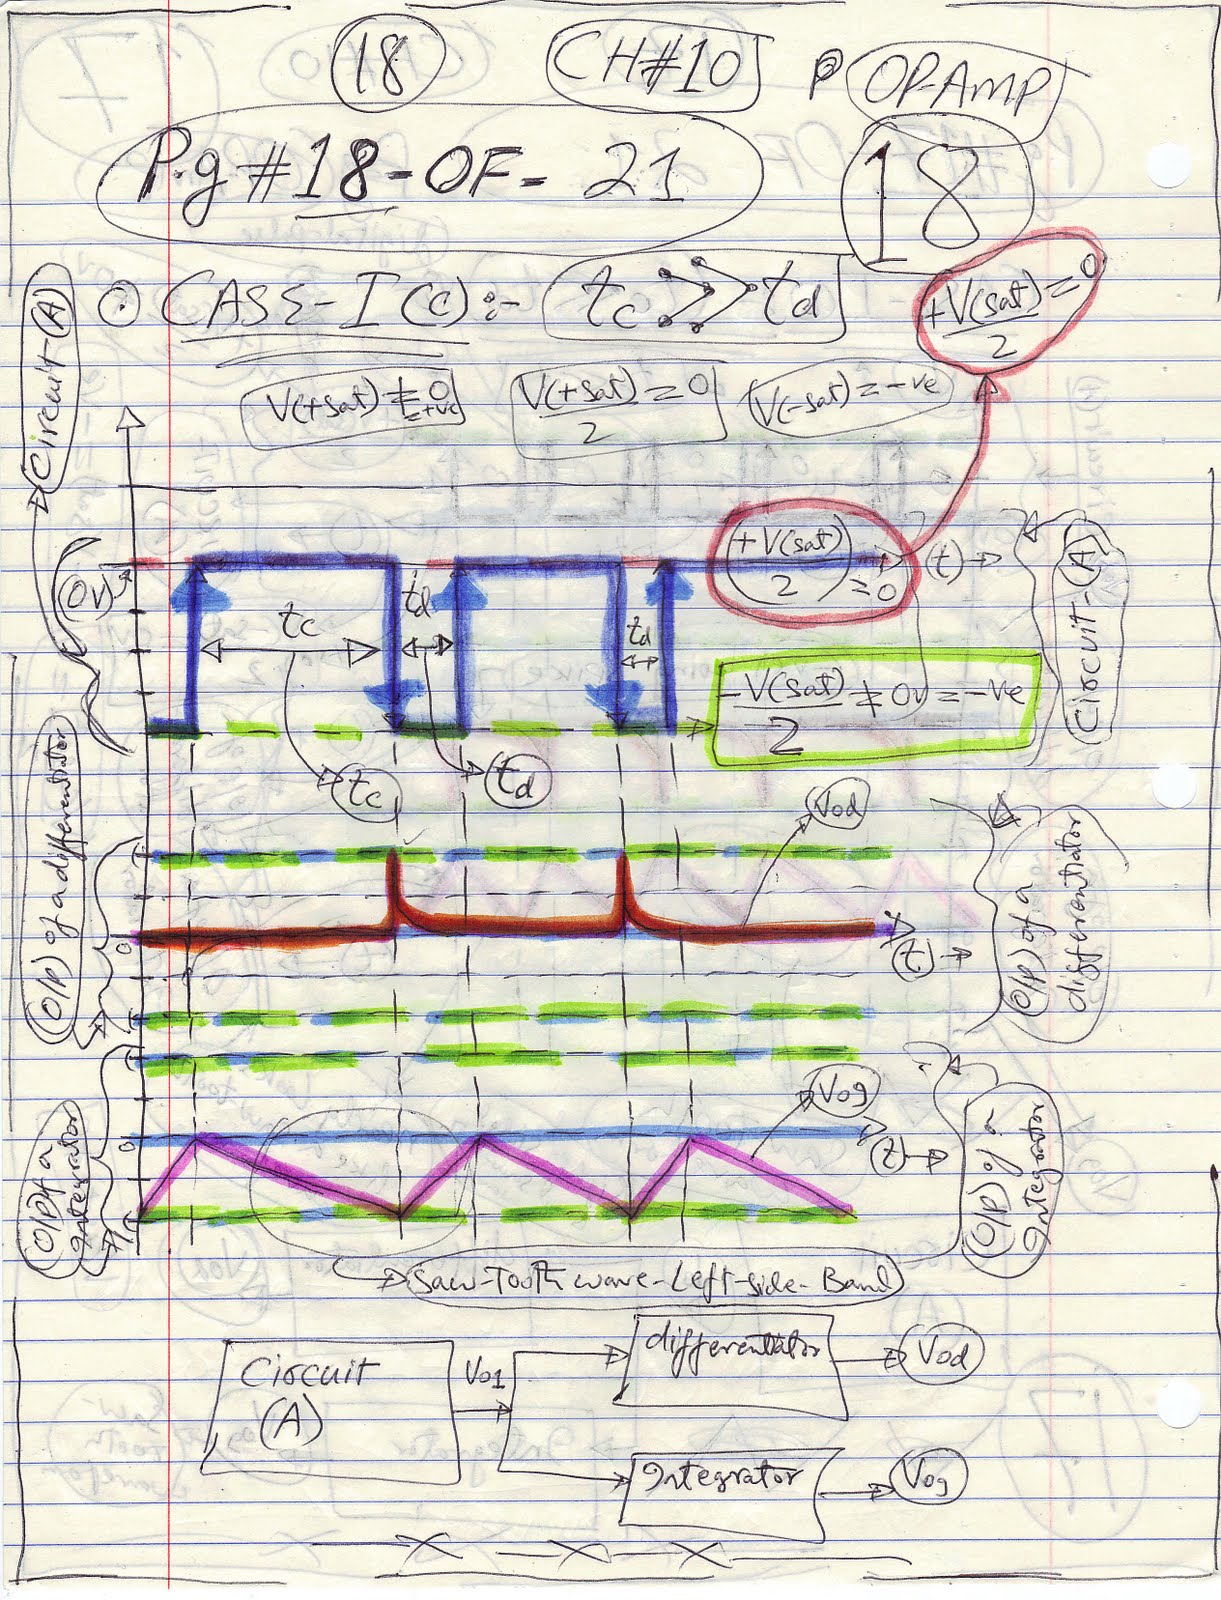 18
CH#10
OP-AMP
Pg #18-OF- 21
18
CASE-I(c):- tc >> td
+V(sat)/2 = 0
Circuit-(A)
V(+sat) ≠ 0 = +ve
V(+sat)/2 = 0
V(-sat) = -ve
0V
+V(sat)/2 = 0
(t)
tc
td
td
Circuit-(A)
-V(sat)/2 ≠ 0V = -ve
tc
td
Vod
O/P) of a differentiator
0
(t)
O/P) of a differentiator
Vog
0
(t)
O/P) of a Integrator
O/P) of a Integrator
Saw-Tooth wave-Left-side-Band
Circuit (A)
Vo1
differentiator
Vod
Integrator
Vog